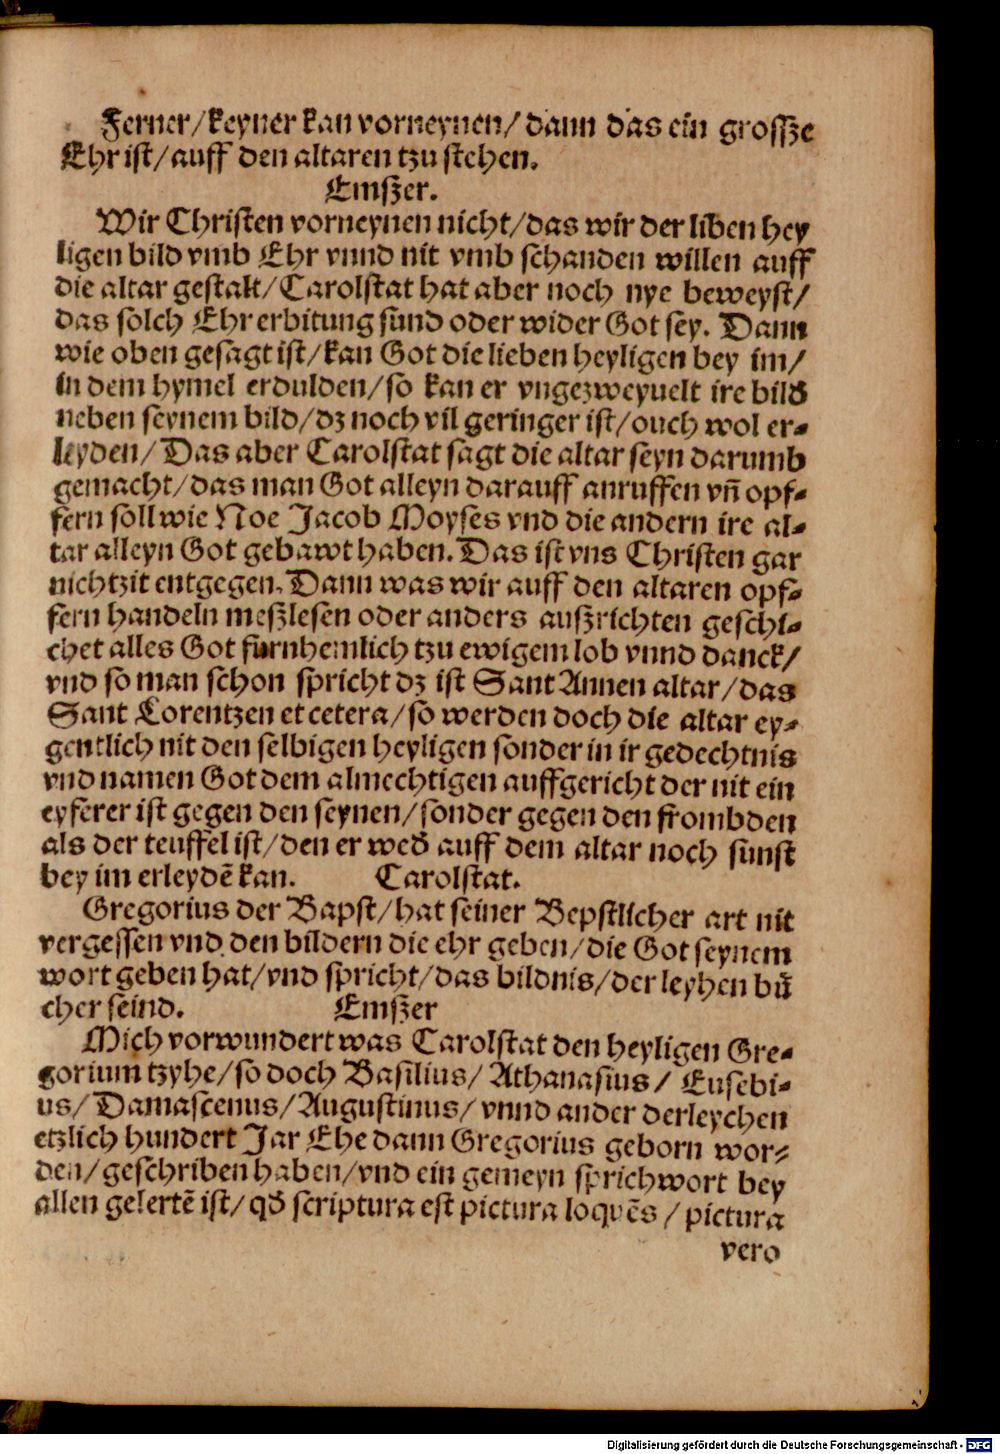 Ferner/keyner kan vorneynen/dann das ein grossze
Ehr ist/auff den altaren tzu stehen.
Emszer.
Wir Christen vorneynen nicht/das wir der liben hey
ligen bild vmb Ehr vnnd nit vmb schanden willen auff
die altar gestalt/Carolstat hat aber noch nye beweyst/
das solch Ehr erbitung sund oder wider Got sey. Dann
wie oben gesagt ist/kan Got die lieben heyligen bey im/
in dem hymel erdulden/so kan er vngezweyuelt ire bild
neben seynem bild/dz noch vil geringer ist/ouch wol er-
leyden/Das aber Carolstat sagt die altar seyn darumb
gemacht/das man Got alleyn darauff anruffen vn̄ opf-
fern soll wie Noe Jacob Moyses vnd die andern ire al-
tar alleyn Got gebawt haben. Das ist vns Christen gar
nichtzit entgegen. Dann was wir auff den altaren opf-
fern handeln meszlesen oder anders auszrichten geschi-
chet alles Got furnhemlich tzu ewigem lob vnnd danck/
vnd so man schon spricht dz ist Sant Annen altar/das
Sant Lorentzen et cetera/so werden doch die altar ey-
gentlich nit den selbigen heyligen sonder in ir gedechtnis
vnd namen Got dem almechtigen auffgericht der nit ein
eyferer ist gegen den seynen/sonder gegen den frombden
als der teuffel ist/den er wed̄ auff dem altar noch sunst
bey im erleydē kan. Carolstat.
Gregorius der Bapst/hat seiner Bepstlicher art nit
vergessen vnd den bildern die ehr geben/die Got seynem
wort geben hat/vnd spricht/das bildnis/der leyhen buͤ
cher seind. Emszer
Mich vorwundert was Carolstat den heyligen Gre-
gorium tzyhe/so doch Basilius/Athanasius/Eusebi-
us/Damascenus/Augustinus/vnnd ander derleychen
etzlich hundert Jar Ehe dann Gregorius geborn wor-
den/geschriben haben/vnd ein gemeyn sprichwort bey
allen gelertē ist/qd̄ scriptura est pictura loquēs/pictura
vero
Digitalisierung gefördert durch die Deutsche Forschungsgemeinschaft - DFG